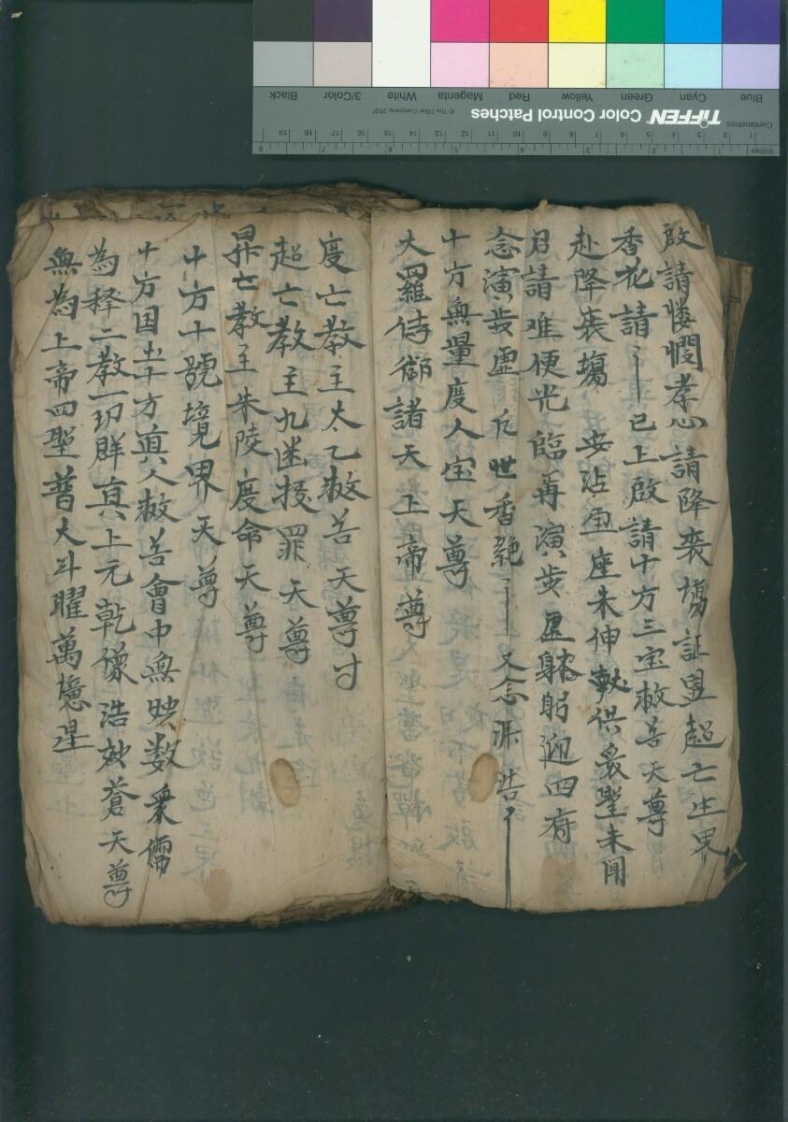 啟請悽憫孝心請降喪場証盟超亡生界
香花請〻〡已上啟請十方三宝救苦天尊
赴降喪塲安沾𤫊座未伸献供衆聖未聞
召請难便光臨再演步虛躳迎四府
念演步虛斤世香鮑〻〡又念
十方無量度人宝天尊
大羅侍御諸天上帝尊
度亡教主太乙救苦天尊寸
超亡教主九迷拔罪天尊
昇亡教主朱陵度命天尊
十方十號境界天尊
十方国土十方真人救苦會中無映数衆儒
為釋二教一切群真上元乾像浩劫蒼天尊
無為上帝四聖普大斗曜萬億星
TIFFEN Color Control Patches
© The Tiffen Company, 2007
Centimetres
Inches
Blue Cyan Green Yellow Red Magenta White 3/Color Black